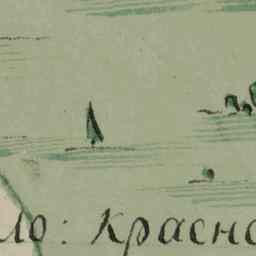 ло: красно